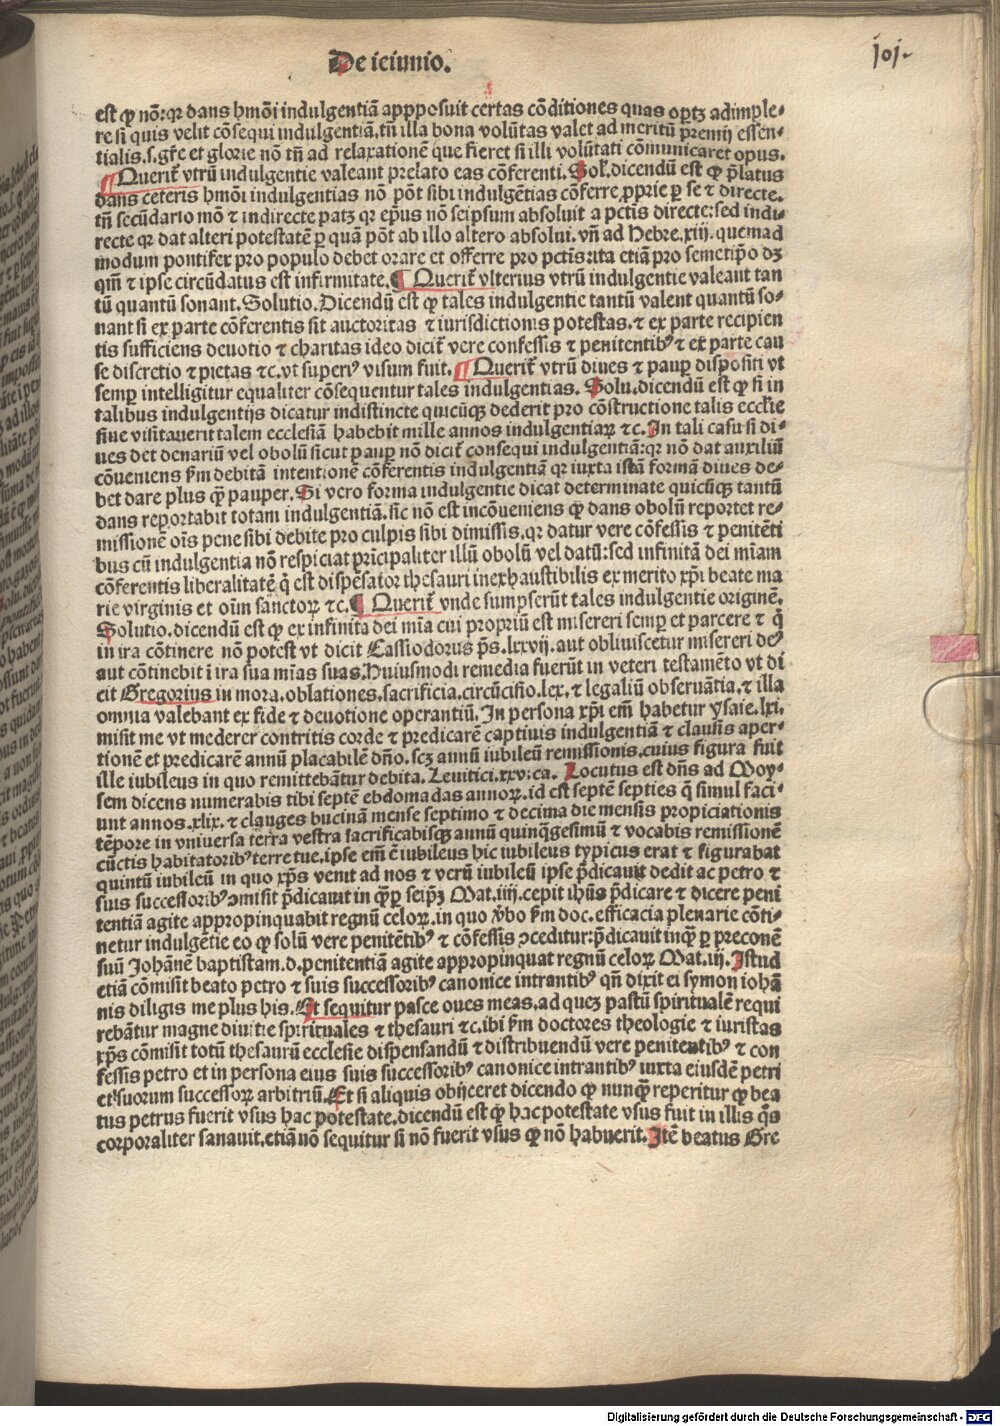 De ieiunio.
101.
est qp nō: qr dans hmōi indulgentiā apposuit certas cōditiones quas optz adimple-
re si quis velit cōsequi indulgentiā. tñ illa bona volūtas valet ad meritū premij essen-
tialis. s. gr̄e et glorie nō tñ ad relaxationē que fieret si illi volūtati cōmunicaret opus.
¶ Querit̄ vtrū indulgentie valeant prelato eas cōferenti. Sol. dicendū est qp p̄latus
dans ceteris hmōi indulgentias nō pōt sibi indulgētias cōferre proprie per se et directe.
tñ secūdario mō et indirecte patz qr ep̄us nō seipsum absoluit a pctis directe: sed indi-
recte qr dat alteri potestatē per quā pōt ab illo altero absolui. vñ ad Hebre. xiij. quemad
modum pontifex pro populo debet orare et offerre pro pctis ita etiā pro semetip̄o dz
qm̄ et ipse circūdatus est infirmitate. ¶ Querit̄ vlterius vtrū indulgentie valeant tan
tū quantū sonant. Solutio. Dicendū est qp tales indulgentie tantū valent quantū so-
nant si ex parte cōferentis sit auctoritas et iurisdictionis potestas. et ex parte recipien
tis sufficiens deuotio et charitas ideo dicit̄ vere confessis et penitentibꝰ et ex parte cau
se discretio et pietas etc. vt superiꝰ visum fuit. ¶ Querit̄ vtrū diues et paup dispositi vt
semp intelligitur equaliter cōsequentur tales indulgentias. Solu. dicendū est qp si in
talibus indulgentijs dicatur indistincte quicūqz dederit pro cōstructione talis eccl̄ie
siue visitauerit talem ecclesiā habebit mille annos indulgentiarꝝ etc. In tali casu si di-
ues det denariū vel obolū sicut paup nō dicit̄ consequi indulgentiā: qr nō dat auxiliū
cōueniens sm̄ debitā intentionē cōferentis indulgentiā qr iuxta istā formā diues de-
bet dare plus qp̄ pauper. Si vero forma indulgentie dicat determinate quicūqz tantū
dans reportabit totam indulgentiā. sic nō est incōueniens qp dans obolū reportet re-
missionē oīs pene sibi debite pro culpis sibi dimissis. qr datur vere cōfessis et penitēti
bus cū indulgentia nō respiciat prīcipaliter illū obolū vel datū: sed infinitā dei mīam
cōferentis liberalitatē q̄ est dispēsator thesauri inexhaustibilis ex merito xp̄i beate ma
rie virginis et oīm sanctorꝝ etc. ¶ Querit̄ vnde sumpserūt tales indulgentie originē.
Solutio. dicendū est qp ex infinita dei mīa cui propriū est misereri semp et parcere et q̄
in ira cōtinere nō potest vt dicit Cassiodorus p̄s. lxxvij. aut obliuiscetur misereri deꝰ
aut cōtinebit ī ira sua mīas suas. Huiusmodi remedia fuerūt in veteri testamēto vt di
cit Gregorius in mora. oblationes. sacrificia. circūcisio. lex. et legaliū obseruātia. et illa
omnia valebant ex fide et deuotione operantiū. In persona xp̄i em̄ habetur ysaie. lxi.
misit me vt mederer contritis corde et predicarē captiuis indulgentiā et clausis aper-
tionē et predicarē annū placabilē dn̄o. scz annū iubileū remissionis. cuius figura fuit
ille iubileus in quo remittebātur debita. Leuitici. xxv. ca. Locutus est dn̄s ad Moy-
sem dicens numerabis tibi septē ebdomadas annorꝝ. id est septē septies q̄ simul faci-
unt annos. xlix. et clanges bucinā mense septimo et decima die mensis propiciationis
tēpore in vniuersa terra vestra sacrificabisqz annū quinq̄gesimū et vocabis remissionē
cūctis habitatoribꝰ terre tue. ipse em̄ ē iubileus hic iubileus typicus erat et figurabat
quintū iubileū in quo xp̄s venit ad nos et verū iubileū ipse p̄dicauit dedit ac petro et
suis successoribꝰ ꝯmisit p̄dicauit in q̄p̄ per seip̄z Mat. iiij. cepit ih̄us p̄dicare et dicere peni
tentiā agite appropinquabit regnū celorꝝ. in quo v̄bo sm̄ doc. efficacia plenarie cōti-
netur indulgētie eo qp solū vere penitētibꝰ et cōfessis ꝯceditur: p̄dicauit inq̄ per preconē
suū Johānē baptistam. d. penitentiā agite appropinquat regnū celorꝝ Mat. iij. Istud
etiā cōmisit beato petro et suis successoribꝰ canonice intrantibꝰ qn̄ dixit ei symon iohā
nis diligis me plus his. Et sequitur pasce oues meas. ad quez pastū spiritualē requi
rebātur magne diuitie spirituales et thesauri etc. ibi sm̄ doctores theologie et iuristas
xp̄s cōmisit totū thesaurū ecclesie dispensandū et distribuendū vere penitentibꝰ et con
fessis petro et in persona eius suis successoribꝰ canonice intrantibꝰ iuxta eiusdē petri
et suorum successorꝝ arbitriū. Et si aliquis obijceret dicendo qp nunq̄ reperitur qp bea
tus petrus fuerit vsus hac potestate. dicendū est qp hac potestate vsus fuit in illis q̄s
corporaliter sanauit. etiā nō sequitur si nō fuerit vsus qp nō habuerit. Itē beatus Gre
Digitalisierung gefördert durch die Deutsche Forschungsgemeinschaft - DFG